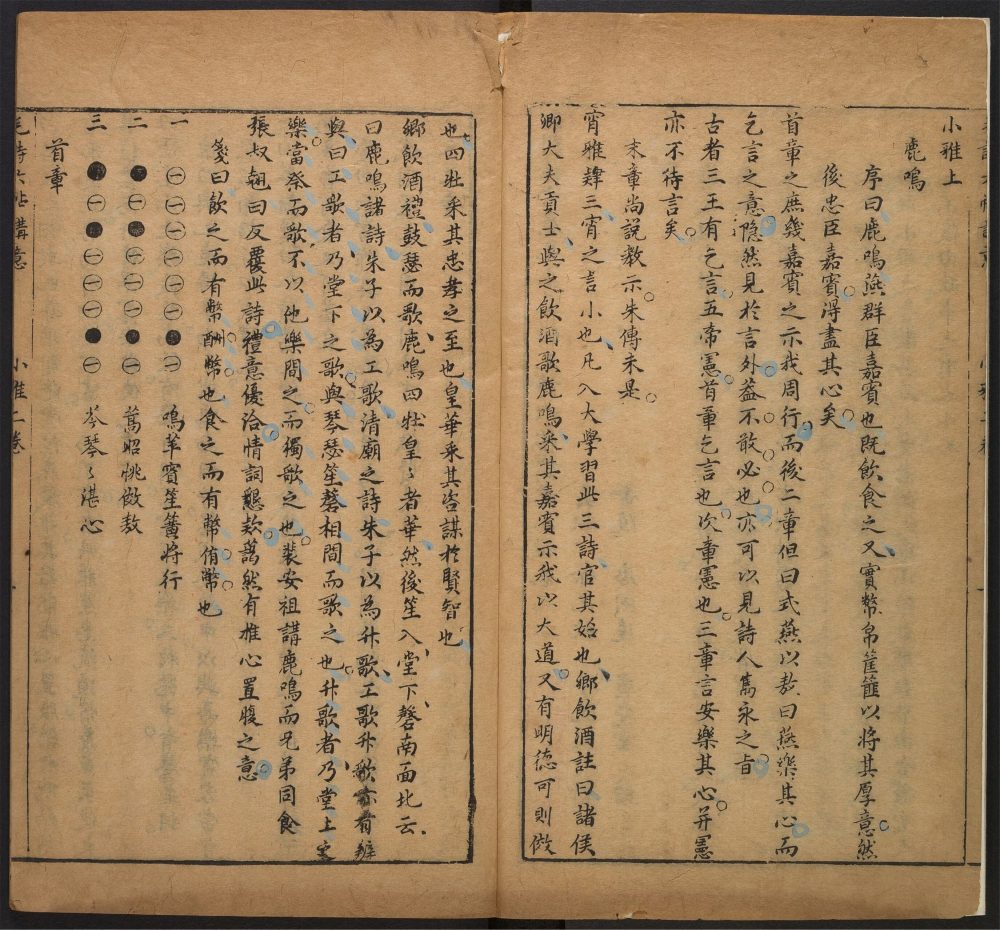 小雅上
鹿鳴
序曰鹿鳴燕群臣嘉賓也既飲食之又實幣帛筐篚以將其厚意然
後忠臣嘉賓得盡其心矣
首章之庶幾嘉賓之示我周行而後二章但曰式燕以敖曰燕樂其心而
乞言之意隐然見於言外葢不敢必也亦可以見詩人雋永之旨
古者三王有乞言五帝憲首章乞言也次章憲也三章言安樂其心并憲
亦不待言矣
末章尚説教示朱傳未是
宵雅肄三宵之言小也凡入大學習此三詩官其始也鄉飲酒註曰諸侯
卿大夫貢士與之飲酒歌鹿鳴采其嘉賓示我以大道又有明德可則傚
也四牡采其忠孝之至也皇華采其咨謀於賢智也
鄉飲酒禮鼓瑟而歌鹿鳴四牡皇〻者華然後笙入堂下磬南面北云
曰鹿鳴諸詩朱子以為工歌清廟之詩朱子以為升歌工歌升歌亦有辨
與曰工歌者乃堂下之歌與琴瑟笙磬相間而歌之也升歌者乃堂上
樂當祭而歌不以他樂間之而獨歌之也裴安祖講鹿鳴而兄弟同食
張叔翹曰反覆此詩禮意優洽情詞懇款藹然有推心置腹之意
箋曰飲之而有幣酬幣也食之而有幣侑幣也
一 鳴苹賓笙簧將行
二 蒿昭恌傚敖
三 芩琴〻湛心
首章
毛詩六帖講意 小雅二卷